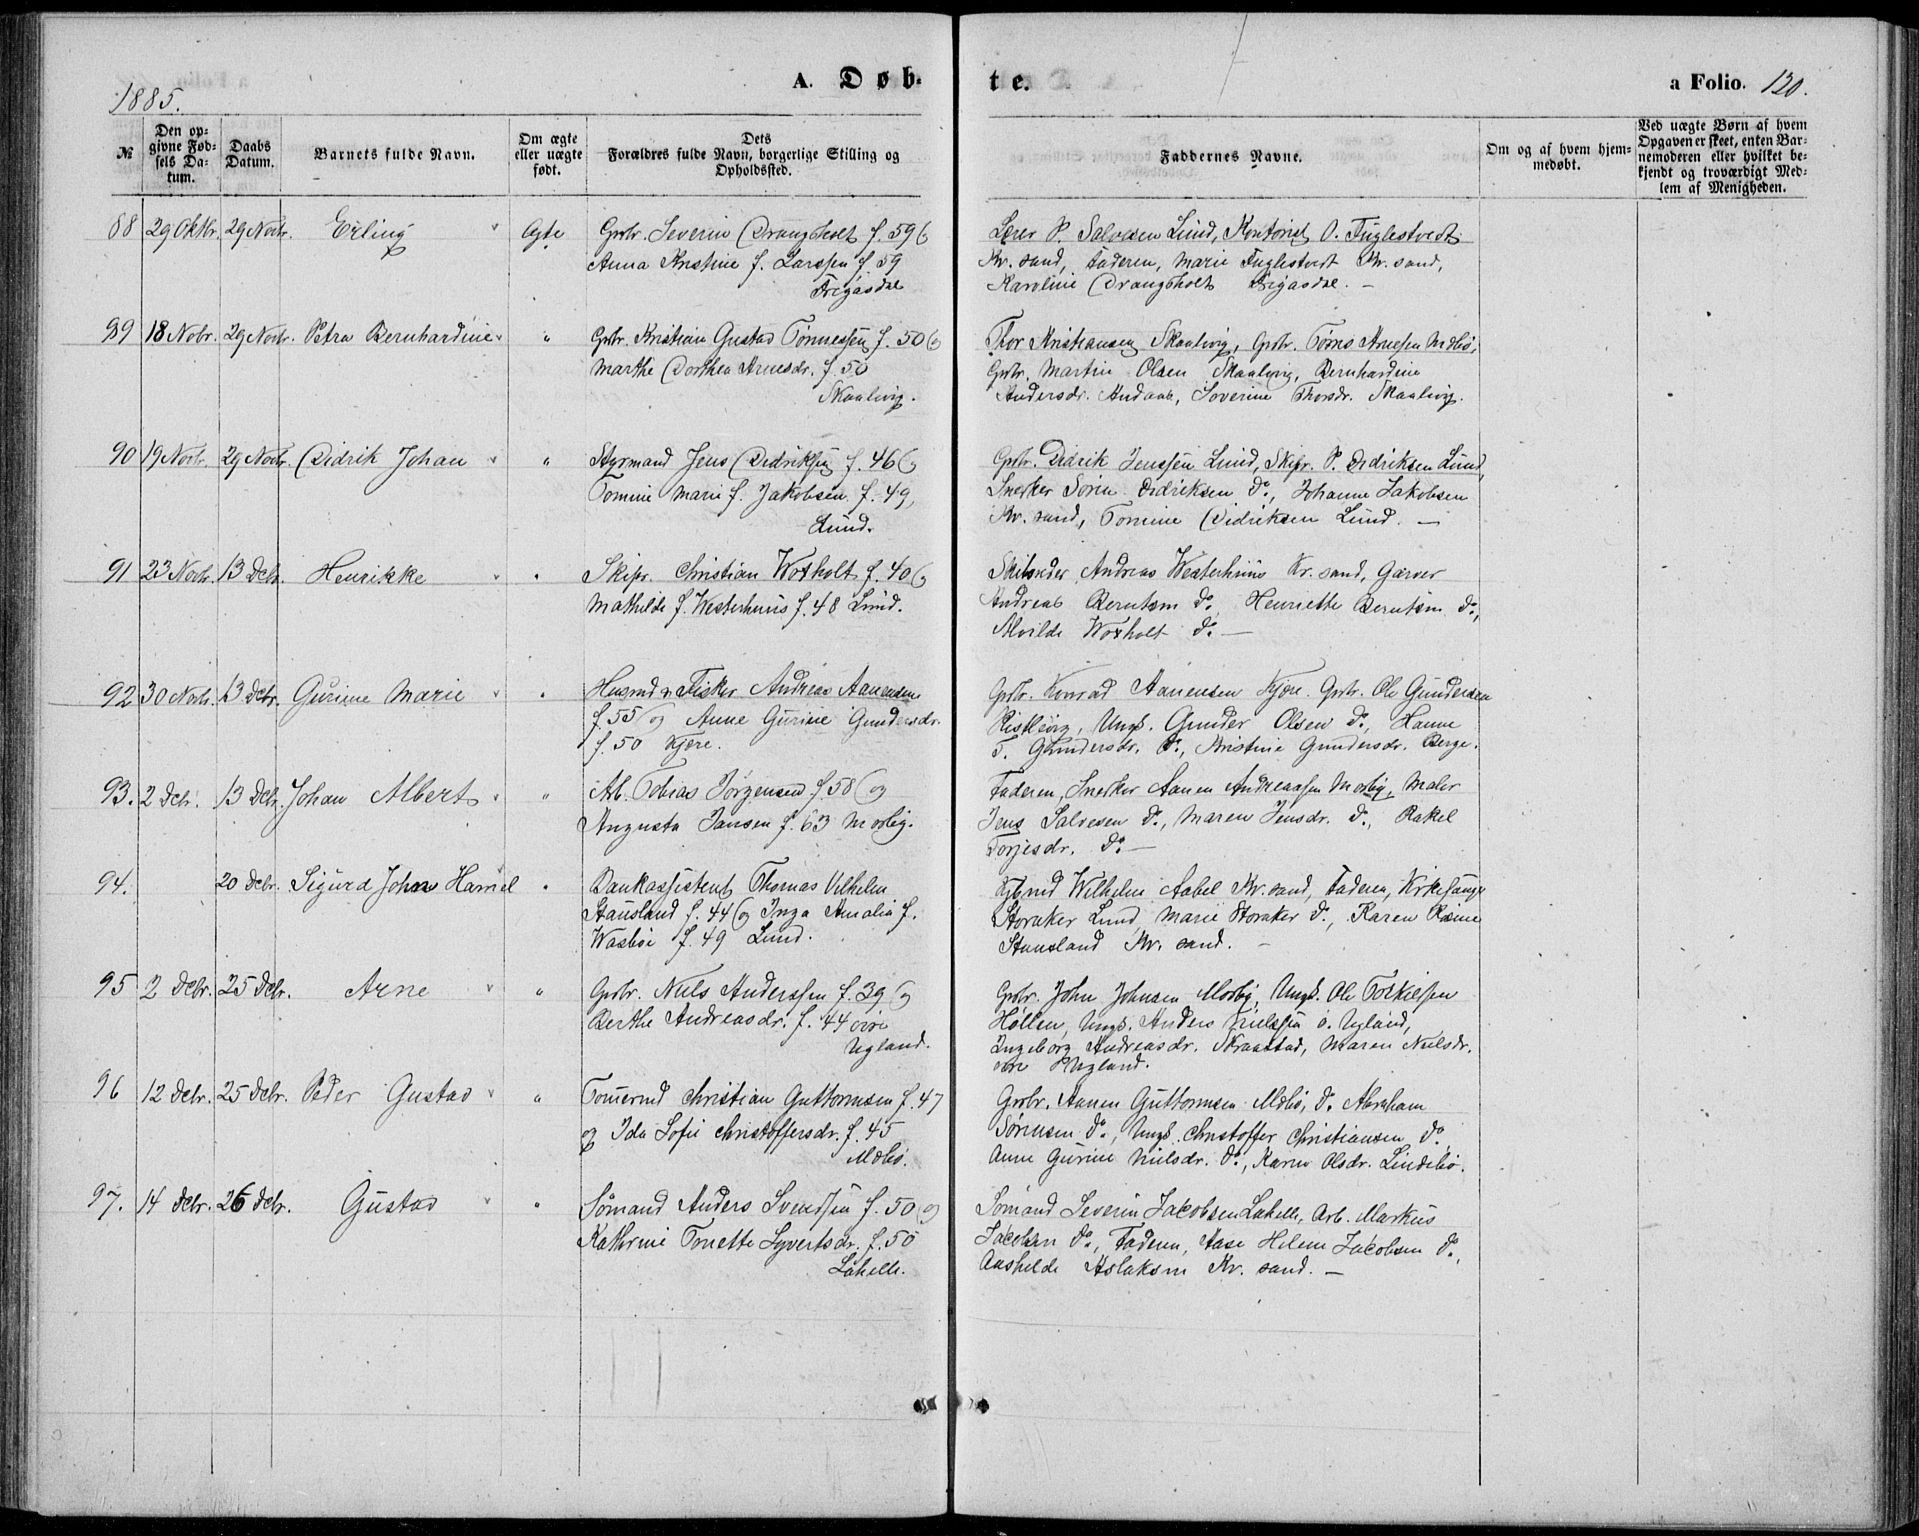 1885.
A. Døb-
te.
a Folio. 120.
№
Den opgivne Fødsels Datum.
Daabs Datum.
Barnets fulde Navn.
Om ægte eller uægte født.
Dets Forældres fulde Navn, borgerlige Stilling og Opholdssted.
Faddernes Navne.
Om og af hvem hjemmedøbt.
Ved uægte Børn af hvem Opgaven er skeet, enten Barnemoderen eller hvilket bekjendt og troværdigt Medlem af Menigheden.
88 29 Oktbr. 29 Novbr. Erling " Ægte Grbr. Severin Drangsholt f. 59 og
Anna Kristine f. Larssen f. 59
Frigasdal
Lærer P. Salvesen Lund, Kontorist O. Fuglestvedt
Kr. sand, Faderen, Marie Fuglestvedt Kr. sand,
Karoline Drangsholt Frigasdal. —
89 18 Nobr. 29 Novbr. Petra Bernhardine " " Grbr. Kristian Gustav Tønnessen f. 50 og
Marthe Dorthea Arnesdr. f. 50
Skaalevig.
Thor Kristiansen Skaalevig, Grbr. Tørres Arnesen Mæbø,
Grbr. Martin Olsen Skaalevig, Bernhardine
Andersdr. Andaas, Soverine Thorsdr. Skaalevig.
90 19 Novbr. 29 Novbr. Didrik Johan " " Styrmand Jens Didriksen f. 46 og
Tomine Marie f. Jakobsen f. 49,
Lund.
Grbr. Didrik Jenssen Lund, Skipr. P. Didriksen Lund,
Snerker Sørin Didriksen do., Johanne Jakobsen
Kr. sand, Tomine Didriksen Lund. —
91 23 Novbr. 13 Debr. Henrikke " " Skipr. Christian Woxholt f. 40 og
Mathilde f. Westerhuus f. 48 Lund.
Andreas Westerhuus Kr. sand, Garver
Andreas Berntsen do., Henriette Berntsen do.,
Alvilde Woxholt do. —
92 30 Novbr. 13 Debr. Gurine Marie " " Husmd. v. Fisker Andreas Aanensen
f. 55 og Anne Gurine Gundersdr.
f. 50 Kjære.
Grbr. Konrad Aanensen Kjære. Grbr. Ole Gundersen
Ungk. Gunder Olsen do., Hanne
T. Gundersdr. do., Kristine Gundersdr. Berge.
93. 2 Debr. 13 Debr. Johan Albert " " Ab. Tobias Jørgensen f. 58 og
Augusta Jansen f. 63 Mosbig.
Faderen, Snerker Aanen Andreassen Mosbig, Maler
Jens Salvesen do., Maren Jensdr. do., Rakel
Torjesdr. do. —
94. 20 Debr. Sigurd John " Bankassistent Thomas Vilhelm
Stausland f. 44 og Inga Amalia f.
Wasbøe f. 49 Lund.
Kjbmd Wilhelm Aabel Kr. sand, Faderen, Kirkesanger
Storaker Lund, Marie Storaker do., Karen
Stausland Kr. sand. —
95 2 Debr. 25 Debr. Arne " " Grbr. Niels Anderssen f. 39 og
Berthe Andreasdr. f. 44 øvre
Ugland.
Grbr. John Johnsen Mosby, Ungk. Ole Torkilsen
Høllen, Ungk. Anders Nielssen ø. Ugland,
Ingeborg Andreasdr. Straastad, Maren Nielsdr.
øvre Ugland.
96 12 Debr. 25 Debr. Peder Gustav " " Tømermd Christian Guttormsen f. 47
og Ida Sofie Christoffersdr. f. 45
Mæbø.
Grbr. Aanen Guttormsen Mæbø, do. Abraham
Sørensen do., Ungk. Christoffer Christiansen do.
Anne Gurine Nielsdr. do., Karen Olsdr. Lindebø.
97. 14 Debr. 26 Debr. Gustav " " Sømand Anders Svendsen f. 50 og
Kathrine Tonette Syvertsdr. f. 50
Lahelle.
Sømand Severin Jacobsen Lahelle, Arb. Markus
Jacobsen do., Faderen, Aase Helene Jacobsen do.,
Aashilde Aslaksen Kr. sand. —